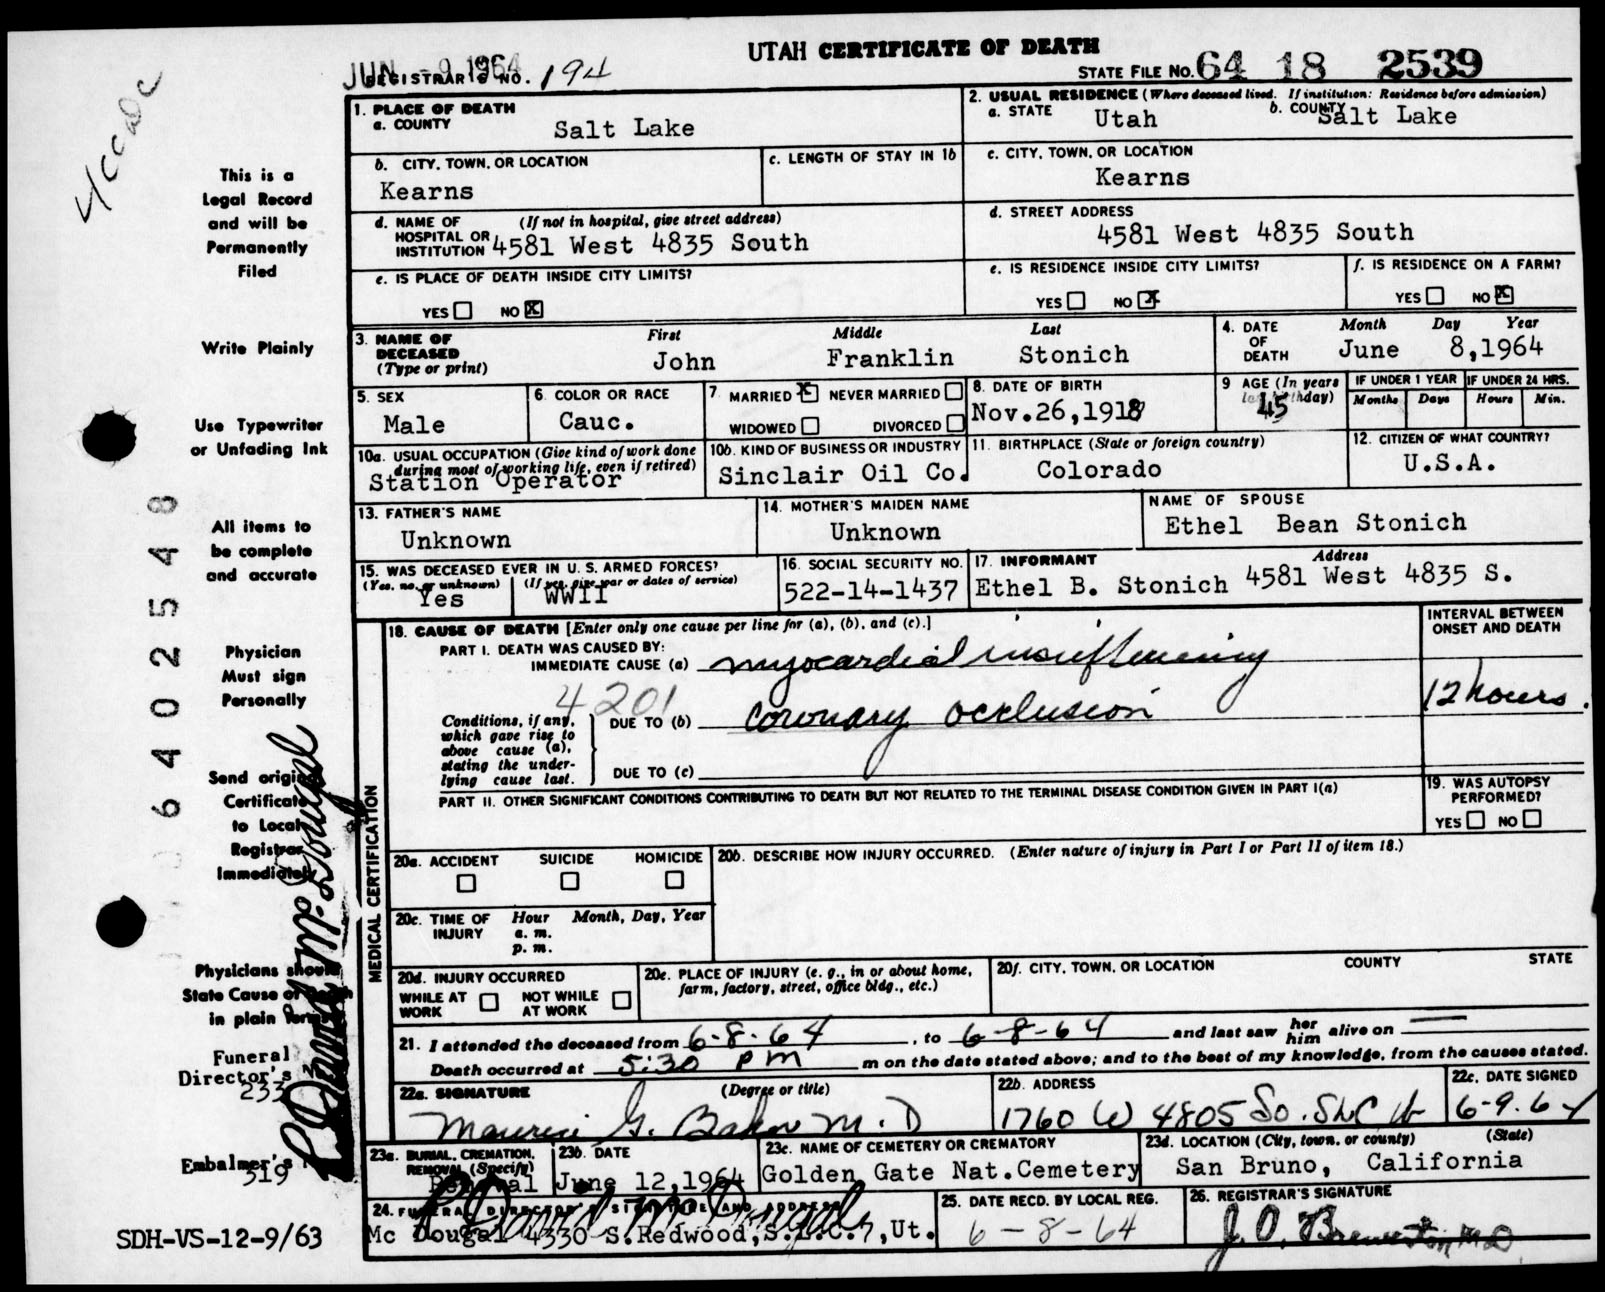 UTAH CERTIFICATE OF DEATH
JUN -9 1964
REGISTRAR'S NO. 194
STATE FILE NO. 64 18 2539
1. PLACE OF DEATH
a. COUNTY Salt Lake
2. USUAL RESIDENCE (Where deceased lived. If institution: Residence before admission)
a. STATE Utah b. COUNTY Salt Lake
b. CITY, TOWN, OR LOCATION
Kearns
c. LENGTH OF STAY IN 1b
c. CITY, TOWN, OR LOCATION
Kearns
d. NAME OF HOSPITAL OR INSTITUTION (If not in hospital, give street address)
4581 West 4835 South
d. STREET ADDRESS
4581 West 4835 South
e. IS PLACE OF DEATH INSIDE CITY LIMITS?
YES NO X
e. IS RESIDENCE INSIDE CITY LIMITS?
YES NO X
f. IS RESIDENCE ON A FARM?
YES NO X
3. NAME OF DECEASED (Type or print)
First Middle Last
John Franklin Stonich
4. DATE OF DEATH
Month Day Year
June 8,1964
5. SEX
Male
6. COLOR OR RACE
Cauc.
7. MARRIED X NEVER MARRIED
WIDOWED DIVORCED
8. DATE OF BIRTH
Nov.26,1918
9 AGE (In years last birthday)
45
IF UNDER 1 YEAR
Months Days
IF UNDER 24 HRS.
Hours Min.
10a. USUAL OCCUPATION (Give kind of work done during most of working life, even if retired)
Station Operator
10b. KIND OF BUSINESS OR INDUSTRY
Sinclair Oil Co.
11. BIRTHPLACE (State or foreign country)
Colorado
12. CITIZEN OF WHAT COUNTRY?
U.S.A.
13. FATHER'S NAME
Unknown
14. MOTHER'S MAIDEN NAME
Unknown
NAME OF SPOUSE
Ethel Bean Stonich
15. WAS DECEASED EVER IN U. S. ARMED FORCES?
(Yes, no, or unknown) (If yes, give war or dates of service)
Yes WWII
16. SOCIAL SECURITY NO.
522-14-1437
17. INFORMANT Address
Ethel B. Stonich 4581 West 4835 S.
MEDICAL CERTIFICATION
18. CAUSE OF DEATH [Enter only one cause per line for (a), (b), and (c).]
INTERVAL BETWEEN ONSET AND DEATH
PART I. DEATH WAS CAUSED BY:
IMMEDIATE CAUSE (a) myocardial insufficiency
4201
12 hours.
Conditions, if any, which gave rise to above cause (a), stating the underlying cause last.
DUE TO (b) coronary occlusion
DUE TO (c)
PART II. OTHER SIGNIFICANT CONDITIONS CONTRIBUTING TO DEATH BUT NOT RELATED TO THE TERMINAL DISEASE CONDITION GIVEN IN PART I(a)
19. WAS AUTOPSY PERFORMED?
YES NO
20a. ACCIDENT SUICIDE HOMICIDE
20b. DESCRIBE HOW INJURY OCCURRED. (Enter nature of injury in Part I or Part II of item 18.)
20c. TIME OF INJURY Hour Month, Day, Year
a. m.
p. m.
20d. INJURY OCCURRED
WHILE AT WORK NOT WHILE AT WORK
20e. PLACE OF INJURY (e. g., in or about home, farm, factory, street, office bldg., etc.)
20f. CITY, TOWN, OR LOCATION COUNTY STATE
21. I attended the deceased from 6-8-64, to 6-8-64 and last saw her him alive on
Death occurred at 5:30 PM m on the date stated above; and to the best of my knowledge, from the causes stated.
22a. SIGNATURE (Degree or title)
Maurice G. Baker M.D
22b. ADDRESS
1760 W 4805 So. SLC Ut
22c. DATE SIGNED
6-9-64
23a. BURIAL, CREMATION, REMOVAL (Specify)
Removal
23b. DATE
June 12,1964
23c. NAME OF CEMETERY OR CREMATORY
Golden Gate Nat.Cemetery
23d. LOCATION (City, town, or county) (State)
San Bruno, California
24. FUNERAL DIRECTOR'S SIGNATURE AND ADDRESS
R David McDougal
Mc Dougal 4330 S.Redwood,S.L.C.,Ut.
25. DATE RECD. BY LOCAL REG.
6-8-64
26. REGISTRAR'S SIGNATURE
J. O. Brewerton MD
This is a
Legal Record
and will be
Permanently
Filed
Write Plainly
Use Typewriter
or Unfading Ink
All items to
be complete
and accurate
Physician
Must sign
Personally
Send original
Certificate
to Local
Registrar
Immediately
Physicians should
State Cause of Death
in plain terms
Funeral
Director's
233
Embalmer's
319
R David McDougal
6402548
SDH-VS-12-9/63